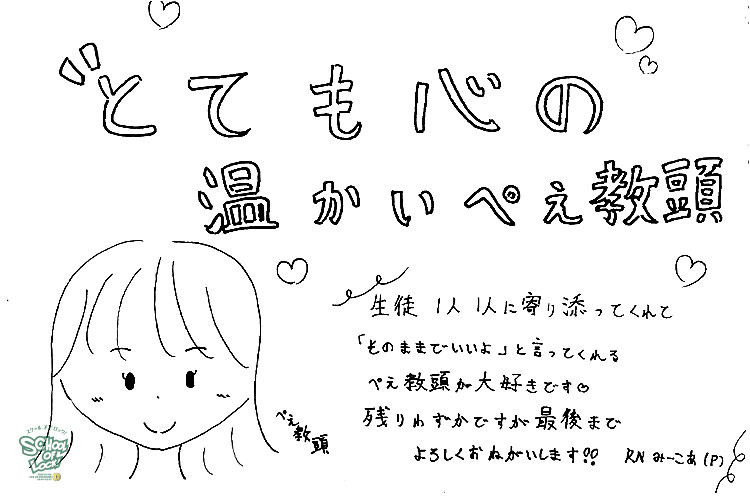 とても心の
温かいぺえ教頭
生徒1人1人に寄り添ってくれて
「そのままでいいよ」と言ってくれる
ぺえ教頭が大好きです♡
残りわずかですが最後まで
よろしくおねがいします!!　RN みーこあ(P)
ぺえ教頭
SCHOOL OF LOCK!